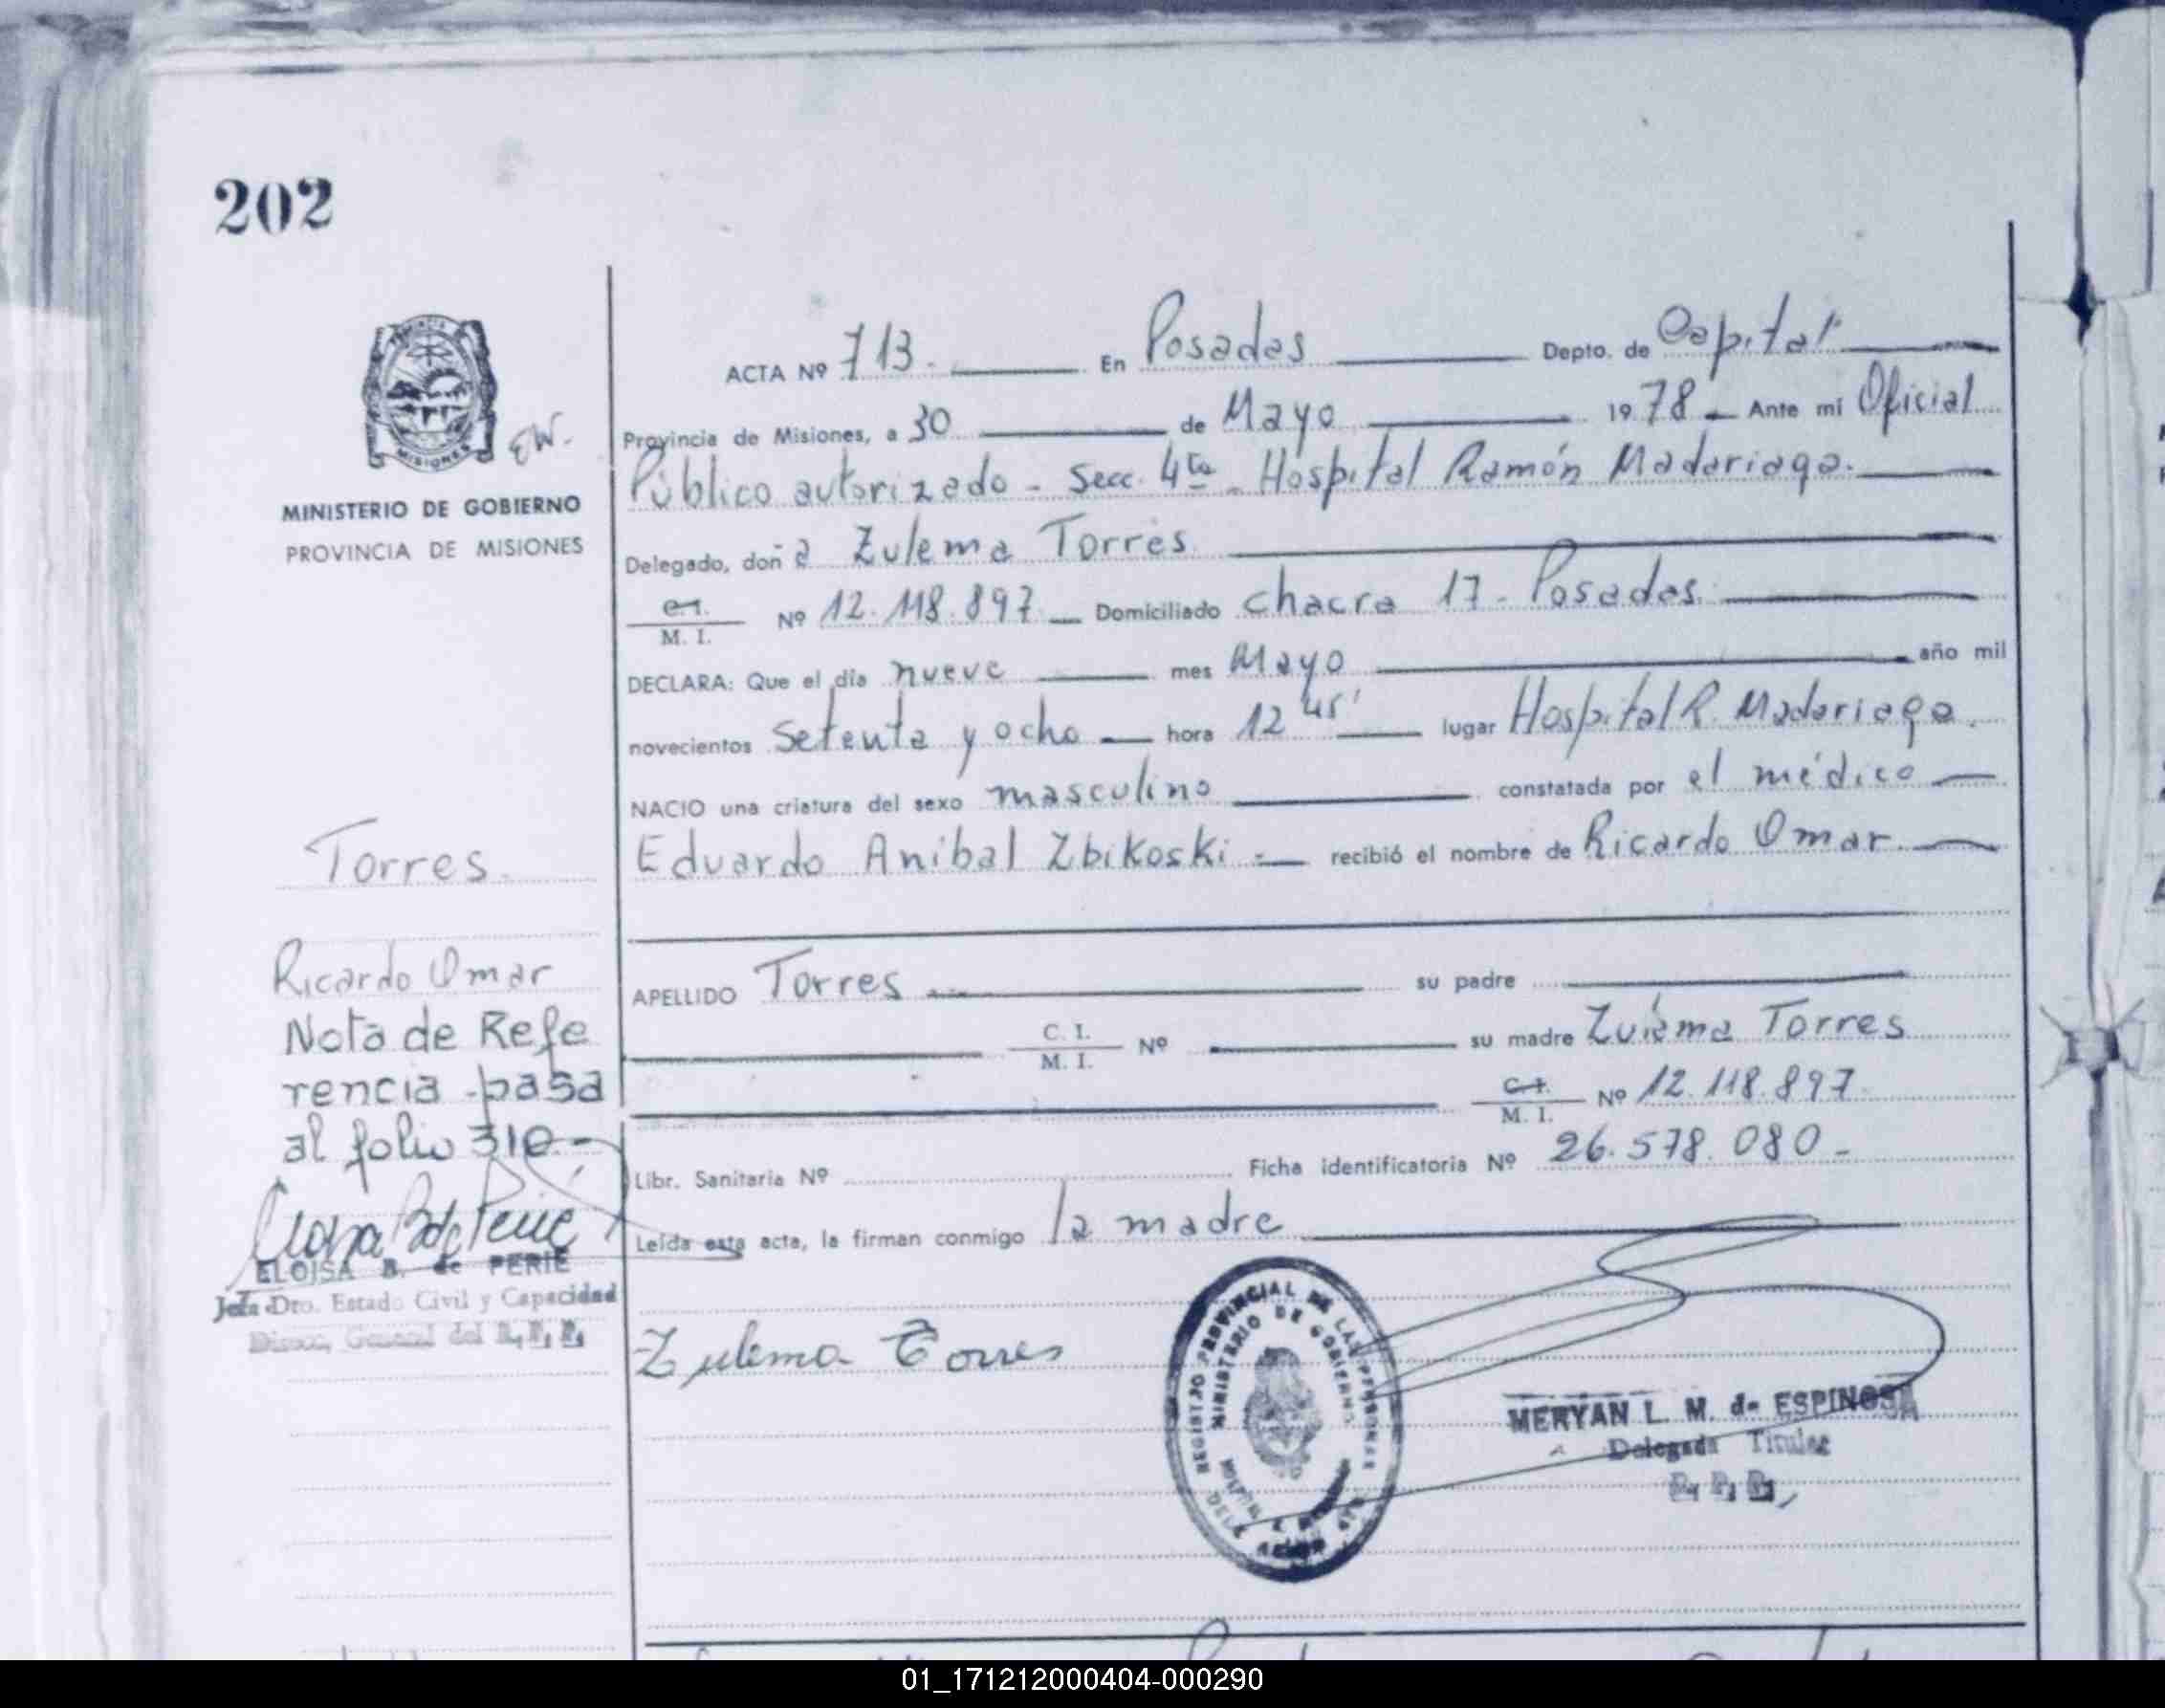 202
ACTA Nº 713. En Posadas Depto. de Capital
Provincia de Misiones, a 30 de Mayo 1978 Ante mi Oficial
EW.
Público autorizado - Secc. 4ta - Hospital Ramón Madariaga.
MINISTERIO DE GOBIERNO
PROVINCIA DE MISIONES
Delegado, doña Zulema Torres
C.I. M. I. Nº 12.118.897 Domiciliado Chacra 17 - Posadas
DECLARA: Que el día nueve mes Mayo año mil
novecientos setenta y ocho hora 12 45' lugar Hospital R. Madariaga.
NACIO una criatura del sexo masculino constatada por el médico
Eduardo Anibal Zbikoski recibió el nombre de Ricardo Omar.
Torres.
Ricardo Omar
APELLIDO Torres su padre
C. I. M. I. Nº su madre Zulema Torres
C.I. M. I. Nº 12.118.897
Nota de Refe
rencia - pasa
al folio 310.-
Libr. Sanitaria Nº Ficha identificatoria Nº 26.578.080 -
Leída esta acta, la firman conmigo la madre
ELOISA B. de PERIE
Jefa Dto. Estado Civil y Capacidad
Direcc. General del R. P. P.
Zulema Torres
REGISTRO PROVINCIAL DE LAS PERSONAS
MINISTERIO DE GOBIERNO
MERYAN L. M. de ESPINOSA
Delegada Titular
R. P. P.
01_171212000404-000290